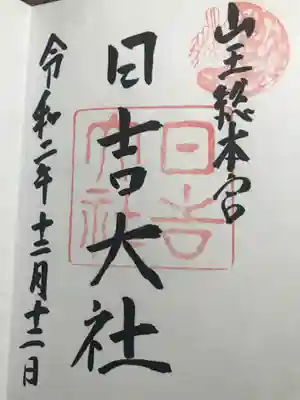 山王総本宮
日吉大社
令和二年十二月十二日
日吉
大社